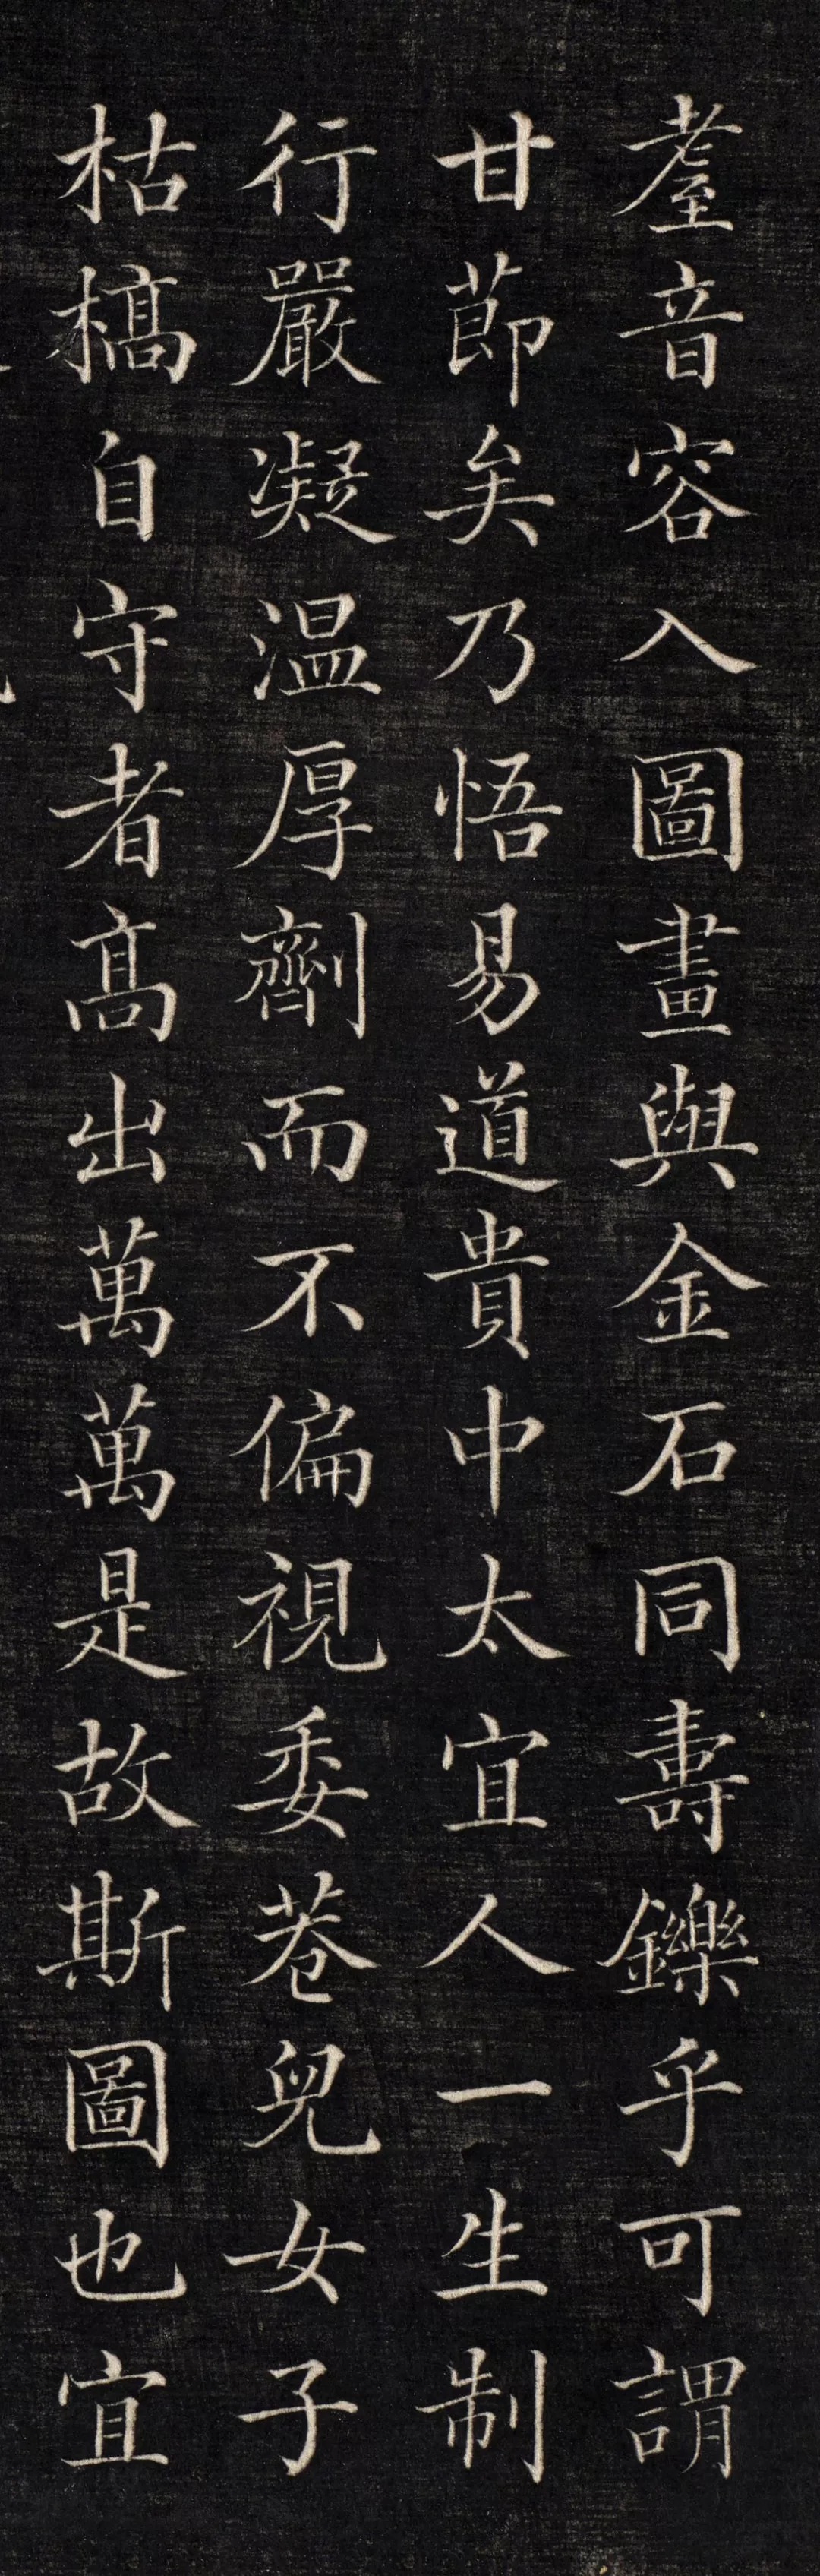 耋音容入圖畫與金石同壽鑠乎可謂
甘節矣乃悟易道貴中太宜人一生制
行嚴凝温厚劑而不偏視委巷兒女子
枯槁自守者高出萬萬是故斯圖也宜